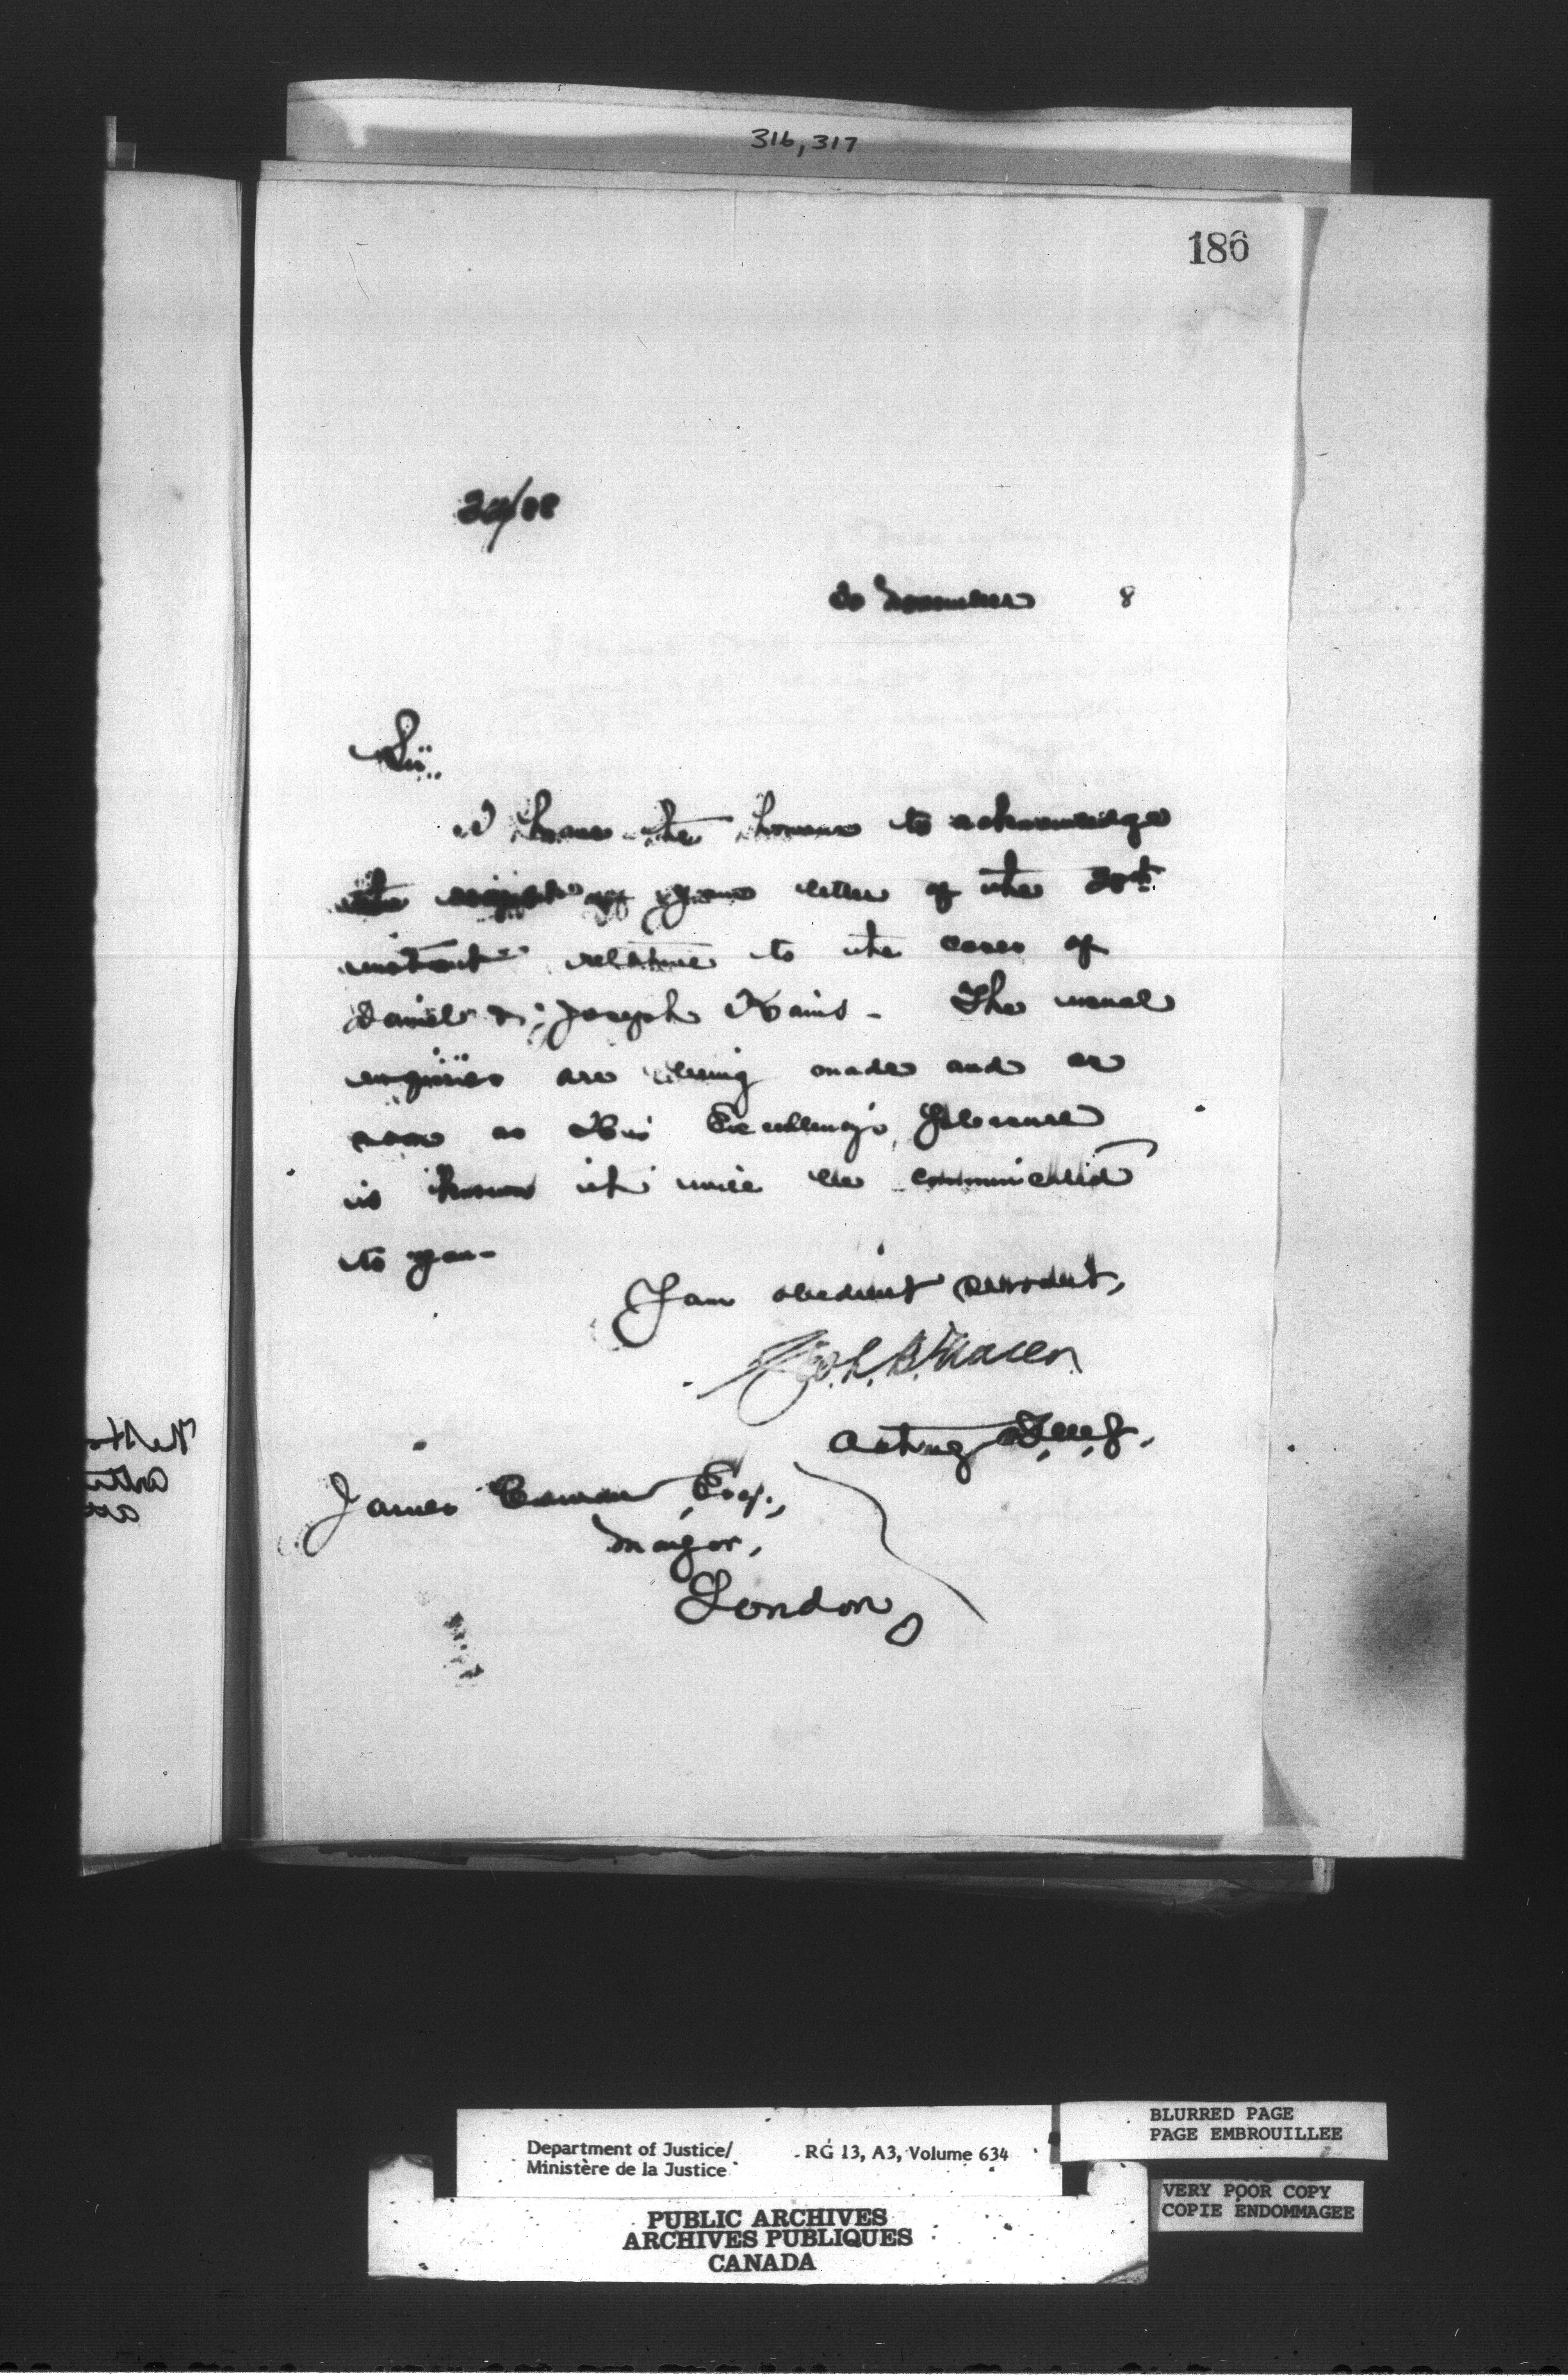 316, 317
186
30 8
Sir,
I have the honour to acknowledge
the receipt of your letter of the
instant relative to the cases of
Daniel & Joseph The usual
enquiries are being made and as
soon as His Excellency's pleasure
is known it will be communicated
to you-
I am obedient servant,
Acting
James Cowan Esq.,
Mayor,
London
Department of Justice/
Ministère de la Justice
RG 13, A3, Volume 634
BLURRED PAGE
PAGE EMBROUILLEE
VERY POOR COPY
COPIE ENDOMMAGEE
PUBLIC ARCHIVES
ARCHIVES PUBLIQUES
CANADA